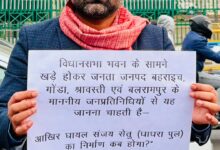 विधानसभा भवन के सामने
खड़े होकर जनता जनपद बहराइच,
गोंडा, श्रावस्ती एवं बलरामपुर के
माननीय जनप्रतिनिधियों से यह
जानना चाहती है–
आखिर घायल संजय सेतु (घाघरा पुल)
का निर्माण कब होगा?"